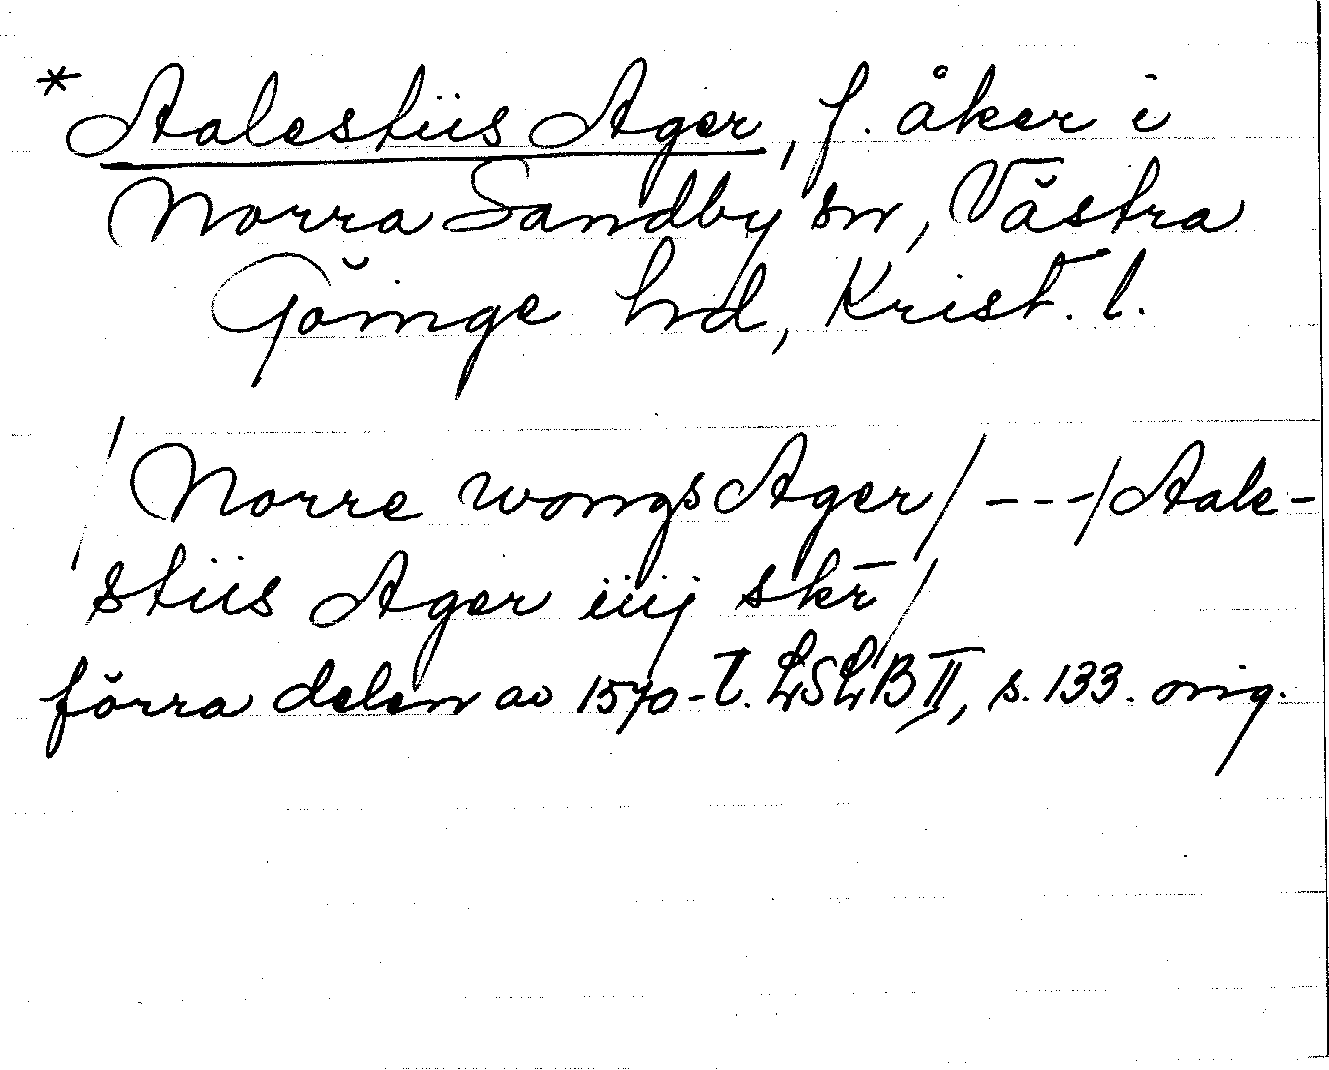 * Aalestiis Ager, f. åker i
Norra Sandby sn, Västra
Göinge hd, Krist. l.
/Norre wongs Ager/---/Aale-
stiis Ager iiij skr/
förra delen av 1570-t. LSLB II, s. 133. orig.